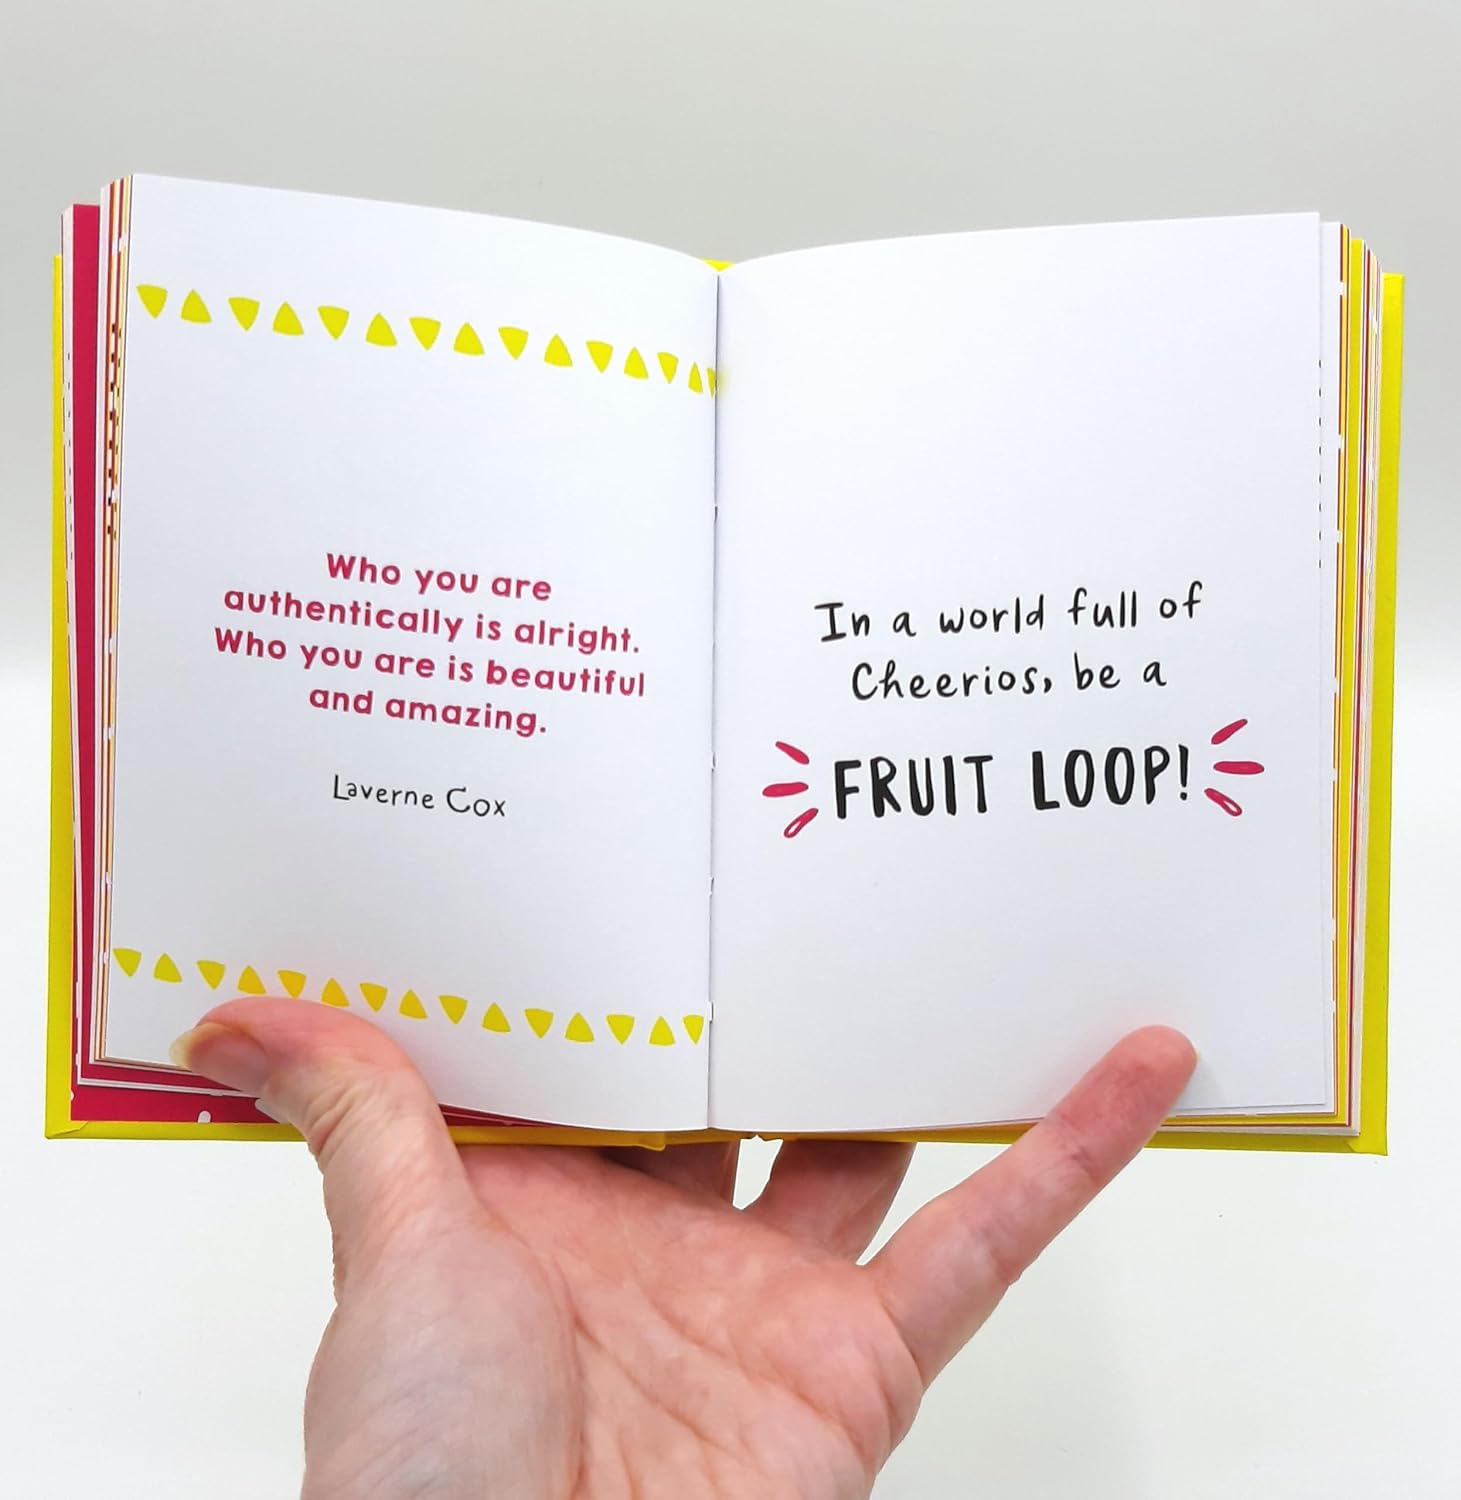 Who you are
authentically is alright.
Who you are is beautiful
and amazing.
Laverne Cox
In a world full of
Cheerios, be a
FRUIT LOOP!